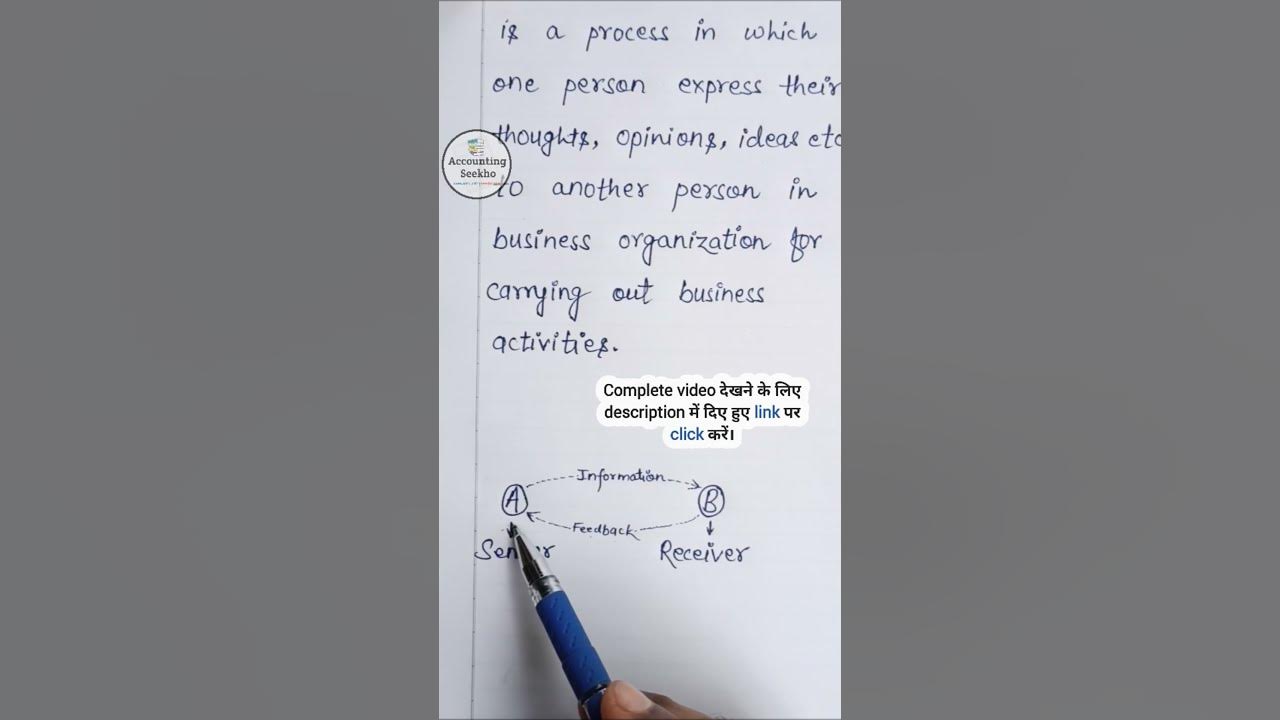 is a process in which
one person express their
thoughts, opinions, ideas etc
to another person in
business organization for
carrying out business
activities.
Accounting
Seekho
Complete video देखने के लिए
description में दिए हुए link पर
click करें।
Information
A B
Feedback
Receiver